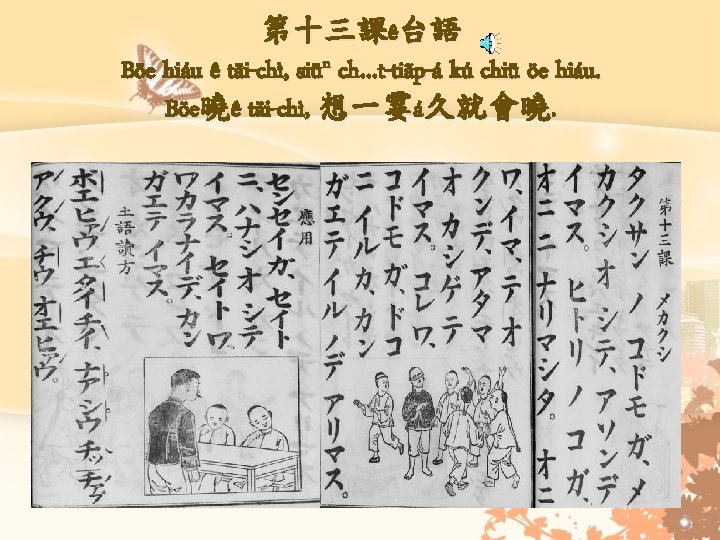 第十三課ê台語
Böe hiáu ê tāi-chì, siūⁿ ch...t-tiãp-á kú chiū öe hiáu.
Böe曉ê tāi-chì, 想一霎á久就會曉.
第十三課 メカクシ
タクサン ノ コドモ ガ、メ
カクシ オ シテ、アソンデ
イマス。 ヒトリ ノ コ ガ、
オニ ニ ナリマシタ。 オニ
ワ、イマ、テ オ
クンデ、アタマ
オ カシゲテ
イマス。 コレワ、
コドモ ガ、ドコ
ニ イル カ、カン
ガエテ イル ノデ アリマス。
應用
センセイ ガ、セイト
ニ、ハナシ オ シテ
イマス。 セイト ワ、
ワカラナイデ、カン
ガエテ イマス。
土語讀方
ボエ ヒァウ エ タイ チイ、
アクウ、チウ オエ ヒァウ。